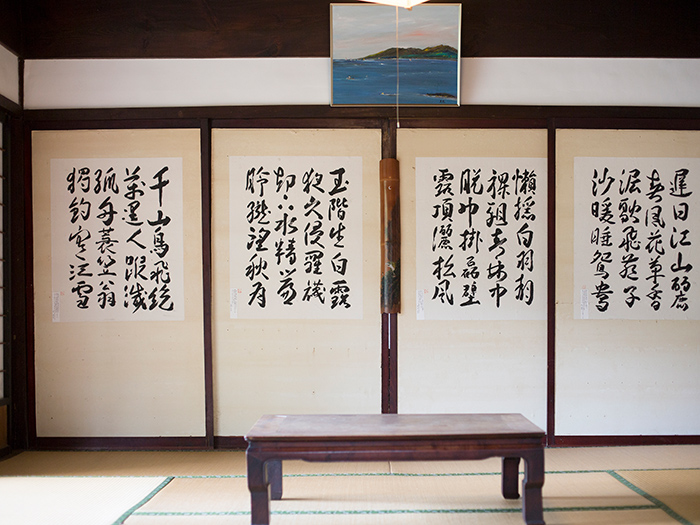 遲日江山麗
春風花草香
泥融飛燕子
沙暖睡鴛鴦
懶搖白羽扇
裸袒青林中
脫巾掛石壁
露頂灑松風
玉階生白露
夜久侵羅襪
却下水精簾
玲瓏望秋月
千山鳥飛絶
萬逕人蹤滅
孤舟蓑笠翁
獨釣寒江雪